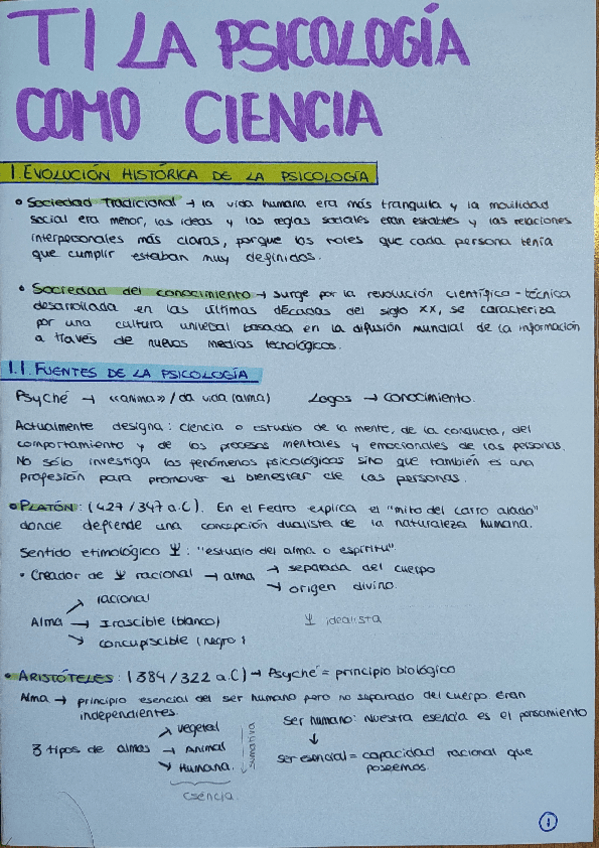 T1 LA PSICOLOGÍA
COMO CIENCIA
1. EVOLUCIÓN HISTÓRICA DE LA PSICOLOGÍA
• Sociedad Tradicional → la vida humana era más tranquila y la movilidad
social era menor, las ideas y las reglas sociales eran estables y las relaciones
interpersonales más claras, porque los roles que cada persona tenía
que cumplir estaban muy definidos.
• Sociedad del conocimiento → surge por la revolución científica-técnica
desarrollada en las últimas décadas del siglo XX, se caracteriza
por una cultura universal basada en la difusión mundial de la información
a través de nuevos medios tecnológicos.
1.1. FUENTES DE LA PSICOLOGÍA
Psyché → «anima» / da vida (alma) Logos → conocimiento.
Actualmente designa: ciencia o estudio de la mente, de la conducta, del
comportamiento y de los procesos mentales y emocionales de las personas.
No sólo investiga los fenómenos psicológicos sino que también es una
profesión para promover el bienestar de las personas.
• PLATÓN: (427/347 a.C). En el Fedro explica el "mito del carro alado"
donde defiende una concepción dualista de la naturaleza humana.
Sentido etimológico Ψ: "estudio del alma o espíritu".
• Creador de Ψ racional → alma → separada del cuerpo
→ origen divino.
Alma → racional
→ Irascible (blanco)
→ concupiscible (negro)
Ψ idealista
• ARISTÓTELES: (384/322 a.C) → Psyché = principio biológico
Alma → principio esencial del ser humano pero no separado del cuerpo eran
independientes.
3 tipos de almas → vegetal
→ Animal
→ Humana.
sumativa
esencia.
Ser humano: nuestra esencia es el pensamiento
↓
ser esencial = capacidad racional que
poseemos.
1